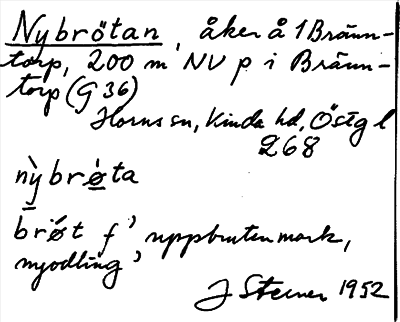 Nybrötan, åker å 1 Bräun-
torp, 200 m NV p i Bräun-
torp (G 36)
Horns sn, Kinda hd, Östgl
268
nỳbrǿta
brǿt f' uppbruten mark,
nyodling'
J Sterner 1952